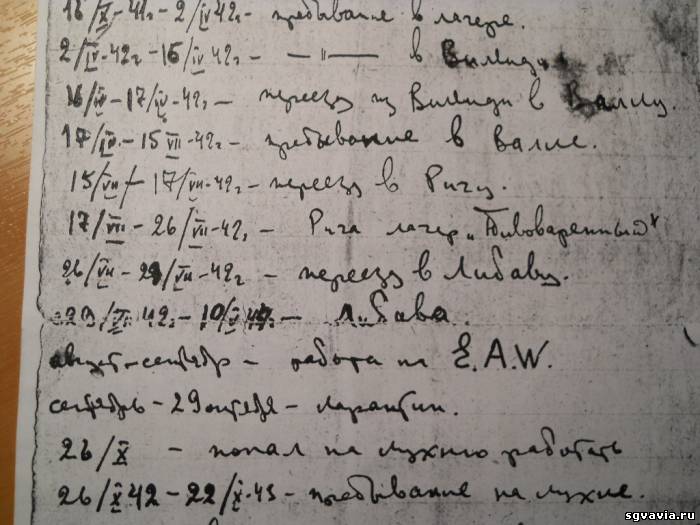 16/X-41г-2/IV 42г- пребывание в лагере.
2/IV-42г-16/IV 42г- — " — в Вилянди
16/IV-17/IV-42г- переезд из Вилянди в Валку.
17/IV-15 VII-42г- пребывание в Валке.
15/VII-17/VII-42г- переезд в Ригу.
17/VII-26/VII-42г- Рига лагер „Пивоваренный"
26/VII-29/VII-42г- переезд в Либаву.
42г-10/ Либава.
август-сентябр - работа на E.A.W.
сентябрь-29 октября- карантин.
26/X - попал на кухню работать
26/X 42-22/X-43- пребывание на кухне.
sgvavia.ru